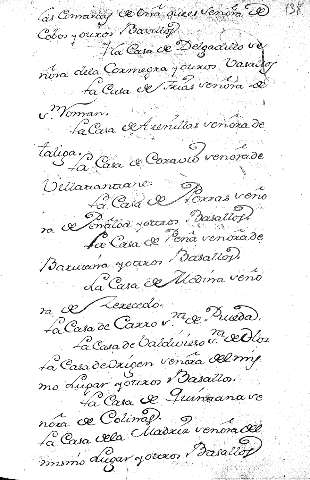 138
las Comarcas de Oña, que es señora de
Cobos y otros Basallos
La Casa de Delgadillo se
ñora de la Cormegra y otros Vasallos
La Casa de Frias señora de
La Casa de Arenillas señora de
taliga.
La Casa de señora de
Villamanzano.
La Casa de Porras seño
ra de y otros Basallos
La Casa de Peña señora de
Barruana y otros Basallos
La Casa de Medina seño
ra de Zerecedo.
La Casa de Carro s.ra de Rueda.
La Casa de Valdivieso s.ra de
La Casa de Origen señora del mis
mo Lugar y otros Basallos.
La Casa de Quintana se
ñora de Colina
La Casa de la Madriz señora del
mismo Lugar y otros Basallos